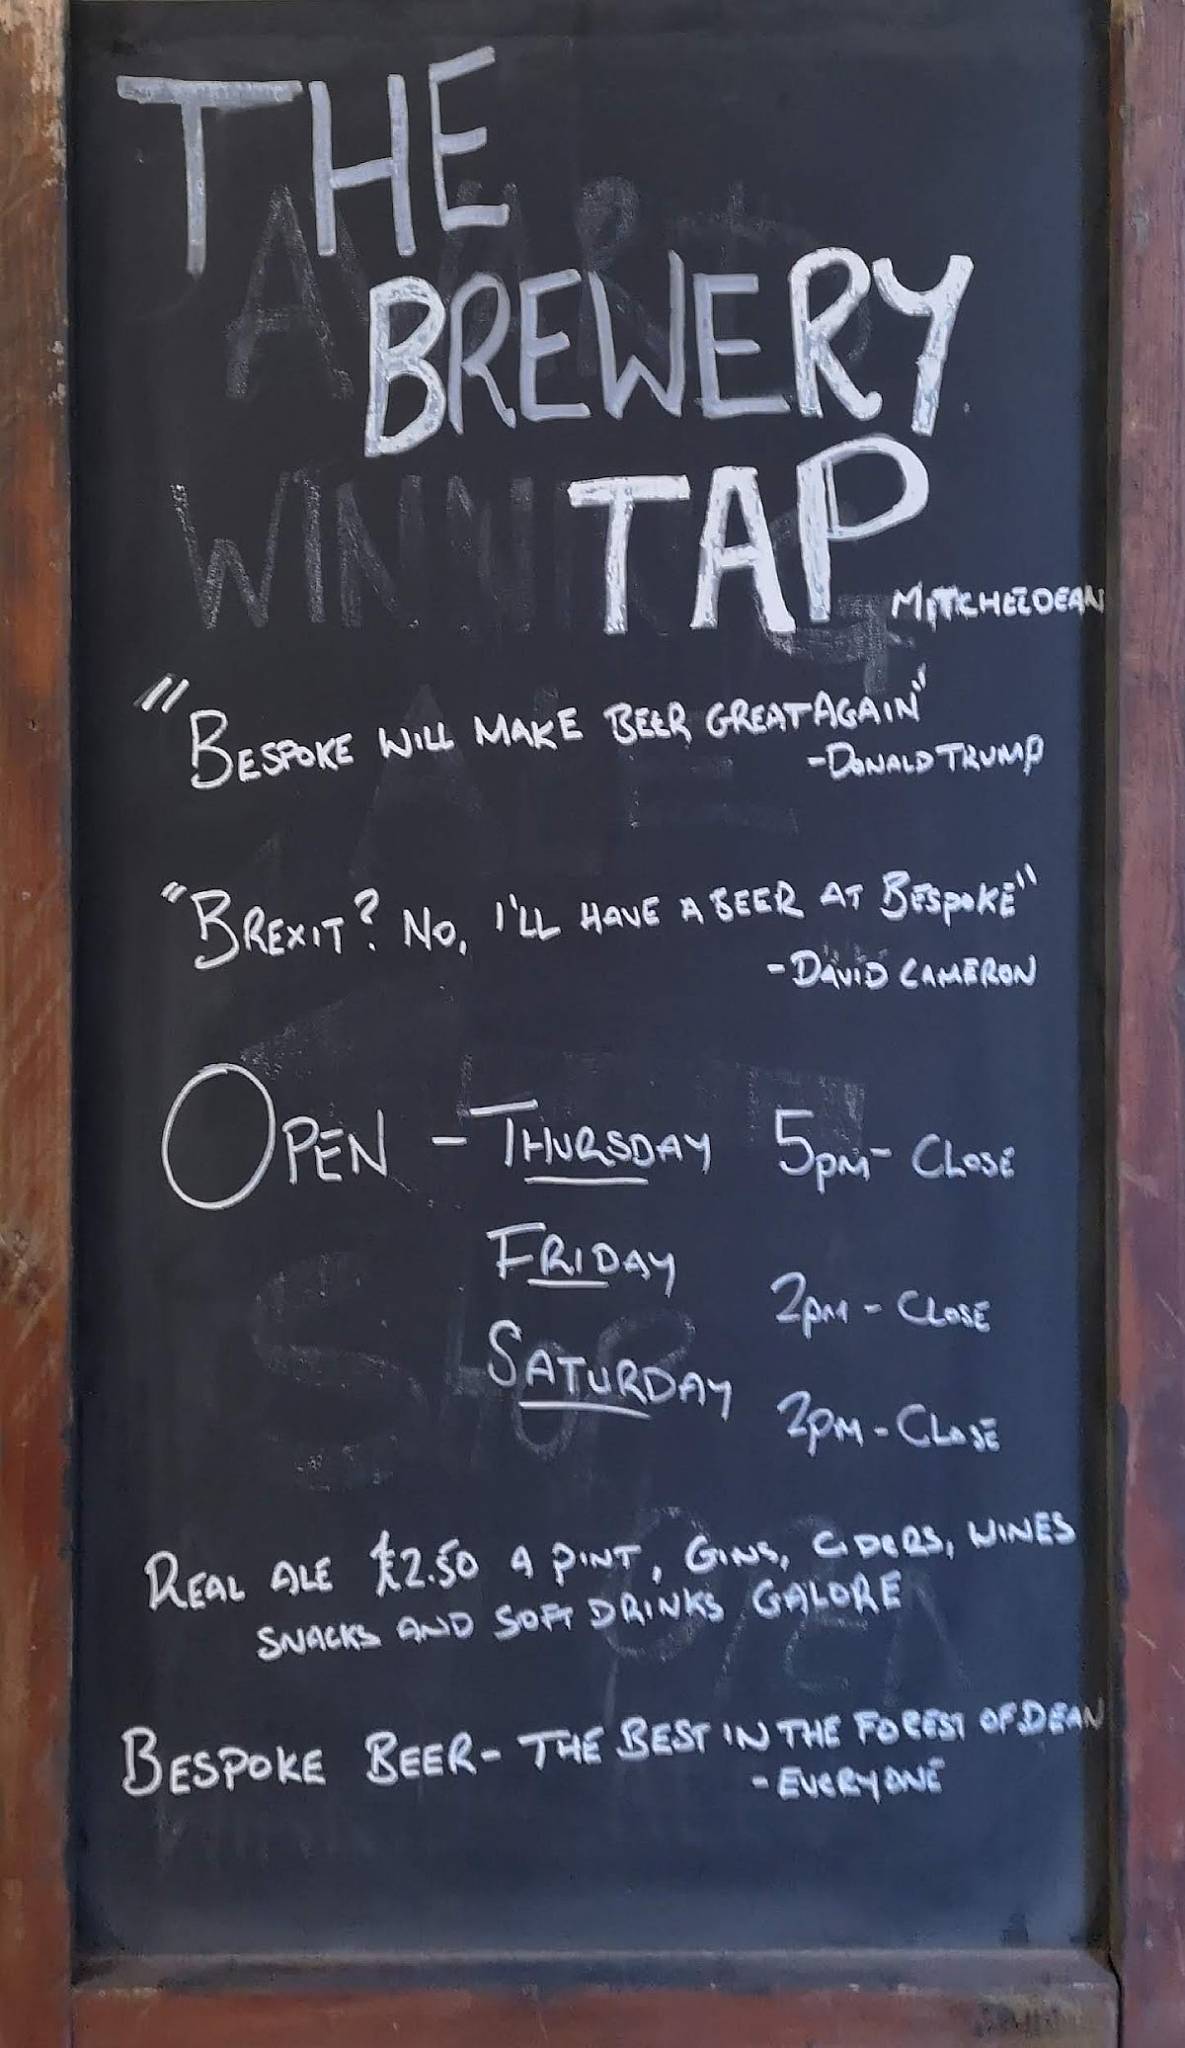 THE
BREWERY
TAP
MITCHELDEAN
"BESPOKE WILL MAKE BEER GREAT AGAIN"
-DONALD TRUMP
"BREXIT? NO, I'LL HAVE A BEER AT BESPOKE"
-DAVID CAMERON
OPEN - THURSDAY 5PM - CLOSE
FRIDAY 2PM - CLOSE
SATURDAY 2PM - CLOSE
REAL ALE £2.50 A PINT, GINS, CIDERS, WINES
SNACKS AND SOFT DRINKS GALORE
BESPOKE BEER - THE BEST IN THE FOREST OF DEAN
- EVERYONE